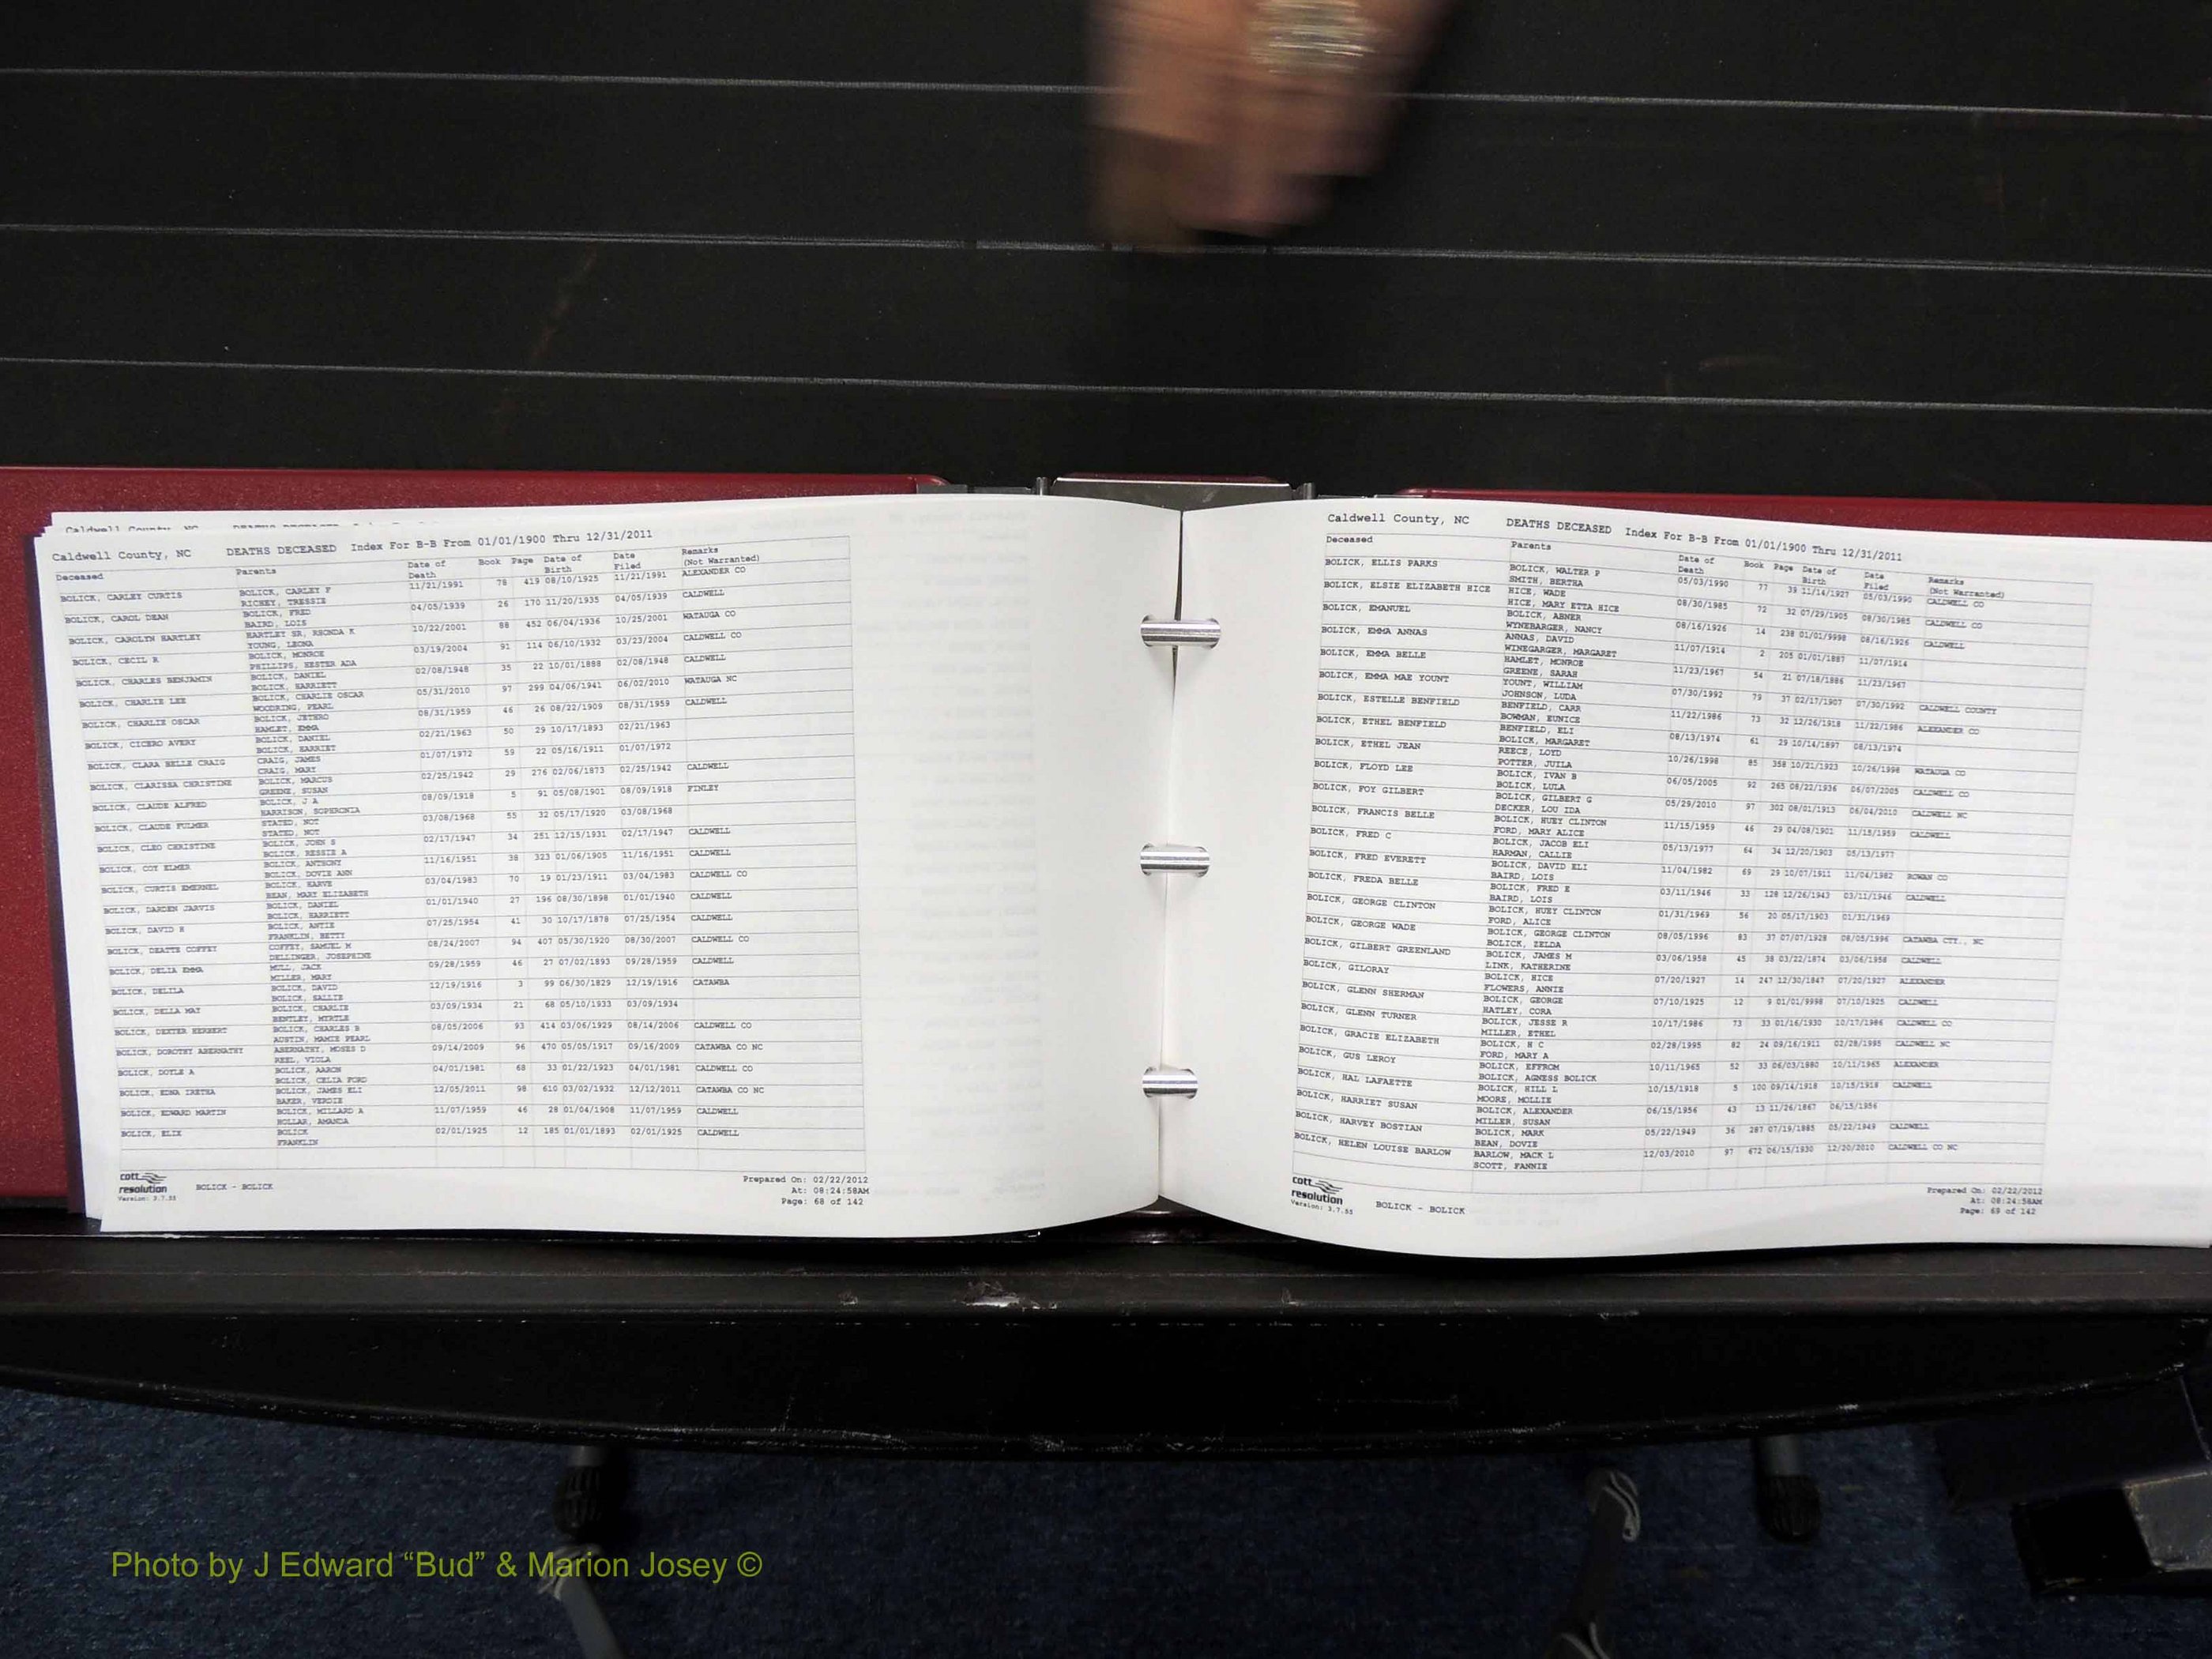 Caldwell County, NC DEATHS DECEASED Index For B-B From 01/01/1900 Thru 12/31/2011
Deceased Parents Date of Death Book Page Date of Birth Date Filed Remarks (Not Warranted)
BOLICK, CARLEY CURTIS BOLICK, CARLEY F 11/21/1991 78 419 08/10/1925 11/21/1991 ALEXANDER CO
RICHEY, TRESSIE
BOLICK, CAROL DEAN BOLICK, FRED 04/05/1939 26 170 11/20/1935 04/05/1939 CALDWELL
BAIRD, LOIS
BOLICK, CAROLYN HARTLEY HARTLEY SR, RHONDA K 10/22/2001 88 452 06/04/1936 10/25/2001 WATAUGA CO
YOUNG, LEONA
BOLICK, CECIL R BOLICK, MONROE 03/19/2004 91 114 06/10/1932 03/23/2004 CALDWELL CO
PHILLIPS, HESTER ADA
BOLICK, CHARLES BENJAMIN BOLICK, DANIEL 02/08/1948 35 22 10/01/1888 02/08/1948 CALDWELL
BOLICK, HARRIETT
BOLICK, CHARLIE LEE BOLICK, CHARLIE OSCAR 05/31/2010 97 299 04/06/1941 06/02/2010 WATAUGA NC
WOODRING, PEARL
BOLICK, CHARLIE OSCAR BOLICK, JETHRO 08/31/1959 46 26 08/22/1909 08/31/1959 CALDWELL
HAMLET, EMMA
BOLICK, CICERO AVERY BOLICK, DANIEL 02/21/1963 50 29 10/17/1893 02/21/1963
BOLICK, HARRIET
BOLICK, CLARA BELLE CRAIG CRAIG, JAMES 01/07/1972 59 22 05/16/1911 01/07/1972
CRAIG, MARY
BOLICK, CLARISSA CHRISTINE BOLICK, MARCUS 02/25/1942 29 276 02/06/1873 02/25/1942 CALDWELL
GREENE, SUSAN
BOLICK, CLAUDE ALFRED BOLICK, J A 08/09/1918 5 91 05/08/1901 08/09/1918 FINLEY
HARRISON, SOPHRONIA
BOLICK, CLAUDE FULMER STATED, NOT 03/08/1968 55 32 05/17/1920 03/08/1968
STATED, NOT
BOLICK, CLEO CHRISTINE BOLICK, JOHN S 02/17/1947 34 251 12/15/1931 02/17/1947 CALDWELL
BOLICK, RESSIE A
BOLICK, COY ELMER BOLICK, ANTHONY 11/16/1951 38 323 01/06/1905 11/16/1951 CALDWELL
BOLICK, DOVIE ANN
BOLICK, CURTIS EMERNEL BOLICK, HARVE 03/04/1983 70 19 01/23/1911 03/04/1983 CALDWELL CO
BEAN, MARY ELIZABETH
BOLICK, DARDEN JARVIS BOLICK, DANIEL 01/01/1940 27 196 08/30/1898 01/01/1940 CALDWELL
BOLICK, HARRIETT
BOLICK, DAVID H BOLICK, ANTIE 07/25/1954 41 30 10/17/1878 07/25/1954 CALDWELL
FRANKLIN, BETTY
BOLICK, DEATTE COFFEY COFFEY, SAMUEL M 08/24/2007 94 407 05/30/1920 08/30/2007 CALDWELL CO
DELLINGER, JOSEPHINE
BOLICK, DELIA EMMA MULL, JACK 09/28/1959 46 27 07/02/1893 09/28/1959 CALDWELL
MILLER, MARY
BOLICK, DELILA BOLICK, DAVID 12/19/1916 3 99 06/30/1829 12/19/1916 CATAWBA
BOLICK, SALLIE
BOLICK, DELLA MAY BOLICK, CHARLIE 03/09/1934 21 68 05/10/1933 03/09/1934
BENTLEY, MYRTLE
BOLICK, DEXTER HERBERT BOLICK, CHARLES B 08/05/2006 93 414 03/06/1929 08/14/2006 CALDWELL CO
AUSTIN, MAMIE PEARL
BOLICK, DOROTHY ABERNATHY ABERNATHY, MOSES D 09/14/2009 96 470 05/05/1917 09/16/2009 CATAWBA CO NC
KEEL, VIOLA
BOLICK, DOYLE A BOLICK, AARON 04/01/1981 68 33 01/22/1923 04/01/1981 CALDWELL CO
BOLICK, CELIA FORD
BOLICK, EDNA IRETHA BOLICK, JAMES ELI 12/05/2011 98 610 03/02/1932 12/12/2011 CATAWBA CO NC
BAKER, VERDIE
BOLICK, EDWARD MARTIN BOLICK, MILLARD A 11/07/1959 46 28 01/04/1908 11/07/1959 CALDWELL
HOLLAR, AMANDA
BOLICK, ELIX BOLICK 02/01/1925 12 185 01/01/1893 02/01/1925 CALDWELL
FRANKLIN
cott resolution
Version: 3.7.55
BOLICK - BOLICK
Prepared On: 02/22/2012
At: 08:24:58AM
Page: 68 of 142
Caldwell County, NC DEATHS DECEASED Index For B-B From 01/01/1900 Thru 12/31/2011
Deceased Parents Date of Death Book Page Date of Birth Date Filed Remarks (Not Warranted)
BOLICK, ELLIS PARKS BOLICK, WALTER P 05/03/1990 77 39 11/14/1927 05/03/1990 CALDWELL CO
SMITH, BERTHA
BOLICK, ELSIE ELIZABETH HICE HICE, WADE 08/30/1985 72 32 07/29/1905 08/30/1985 CALDWELL CO
HICE, MARY ETTA HICE
BOLICK, EMANUEL BOLICK, ABNER 08/16/1926 14 238 01/01/9998 08/16/1926 CALDWELL
WYNEBARGER, NANCY
BOLICK, EMMA ANNAS ANNAS, DAVID 11/07/1914 2 205 01/01/1887 11/07/1914
WINEGARGER, MARGARET
BOLICK, EMMA BELLE HAMLET, MONROE 11/23/1967 54 21 07/18/1886 11/23/1967
GREENE, SARAH
BOLICK, EMMA MAE YOUNT YOUNT, WILLIAM 07/30/1992 79 37 02/17/1907 07/30/1992 CALDWELL COUNTY
JOHNSON, LUDA
BOLICK, ESTELLE BENFIELD BENFIELD, CARR 11/22/1986 73 32 12/26/1918 11/22/1986 ALEXANDER CO
BOWMAN, EUNICE
BOLICK, ETHEL BENFIELD BENFIELD, ELI 08/13/1974 61 29 10/14/1897 08/13/1974
BOLICK, MARGARET
BOLICK, ETHEL JEAN REECE, LOYD 10/26/1998 85 358 10/21/1923 10/26/1998 WATAUGA CO
POTTER, JUILA
BOLICK, FLOYD LEE BOLICK, IVAN B 06/05/2005 92 265 08/22/1936 06/07/2005 CALDWELL CO
BOLICK, LULA
BOLICK, FOY GILBERT BOLICK, GILBERT G 05/29/2010 97 302 08/01/1913 06/04/2010 CALDWELL NC
DECKER, LOU IDA
BOLICK, FRANCIS BELLE BOLICK, HUEY CLINTON 11/15/1959 46 29 04/08/1901 11/15/1959 CALDWELL
FORD, MARY ALICE
BOLICK, FRED C BOLICK, JACOB ELI 05/13/1977 64 34 12/20/1903 05/13/1977
HARMAN, CALLIE
BOLICK, FRED EVERETT BOLICK, DAVID ELI 11/04/1982 69 29 10/07/1911 11/04/1982 ROWAN CO
BAIRD, LOIS
BOLICK, FREDA BELLE BOLICK, FRED E 03/11/1946 33 128 12/26/1943 03/11/1946 CALDWELL
BAIRD, LOIS
BOLICK, GEORGE CLINTON BOLICK, HUEY CLINTON 01/31/1969 56 20 05/17/1903 01/31/1969
FORD, ALICE
BOLICK, GEORGE WADE BOLICK, GEORGE CLINTON 08/05/1996 83 37 07/07/1928 08/05/1996 CATAWBA CTY., NC
BOLICK, ZELDA
BOLICK, GILBERT GREENLAND BOLICK, JAMES M 03/06/1958 45 38 03/22/1874 03/06/1958 CALDWELL
LINK, KATHERINE
BOLICK, GILORAY BOLICK, HICE 07/20/1927 14 247 12/30/1847 07/20/1927 ALEXANDER
FLOWERS, ANNIE
BOLICK, GLENN SHERMAN BOLICK, GEORGE 07/10/1925 12 9 01/01/9998 07/10/1925 CALDWELL
HATLEY, CORA
BOLICK, GLENN TURNER BOLICK, JESSE R 10/17/1986 73 33 01/16/1930 10/17/1986 CALDWELL CO
MILLER, ETHEL
BOLICK, GRACIE ELIZABETH BOLICK, H C 02/28/1995 82 24 09/16/1911 02/28/1995 CALDWELL NC
FORD, MARY A
BOLICK, GUS LEROY BOLICK, EFFROM 10/11/1965 52 33 06/03/1880 10/11/1965 ALEXANDER
BOLICK, AGNESS BOLICK
BOLICK, HAL LAFAETTE BOLICK, HILL L 10/15/1918 5 100 09/14/1918 10/15/1918 CALDWELL
MOORE, MOLLIE
BOLICK, HARRIET SUSAN BOLICK, ALEXANDER 06/15/1956 43 13 11/26/1867 06/15/1956
MILLER, SUSAN
BOLICK, HARVEY BOSTIAN BOLICK, MARK 05/22/1949 36 287 07/19/1885 05/22/1949 CALDWELL
BEAN, DOVIE
BOLICK, HELEN LOUISE BARLOW BARLOW, MACK L 12/03/2010 97 672 06/15/1930 12/20/2010 CALDWELL CO NC
SCOTT, FANNIE
cott resolution
Version: 3.7.55
BOLICK - BOLICK
Prepared On: 02/22/2012
At: 08:24:58AM
Page: 69 of 142
Photo by J Edward “Bud” & Marion Josey ©